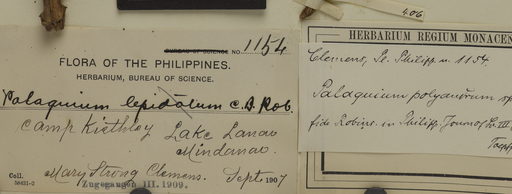 406
BUREAU OF SCIENCE NO. 1154
FLORA OF THE PHILIPPINES.
HERBARIUM, BUREAU OF SCIENCE.
Palaquium lepidotum C. B. Rob.
Camp Kiethley Lake Lanao
Mindanao.
Coll. Mary Strong Clemens. Sept 1907
56431-2
Zugegangen III. 1909.
HERBARIUM REGIUM MONACEN
Clemens, Pl. Philipp. n. 1154.
Palaquium polyandrum sp
fide Robins. in Philipp. Journ. of Sc. III